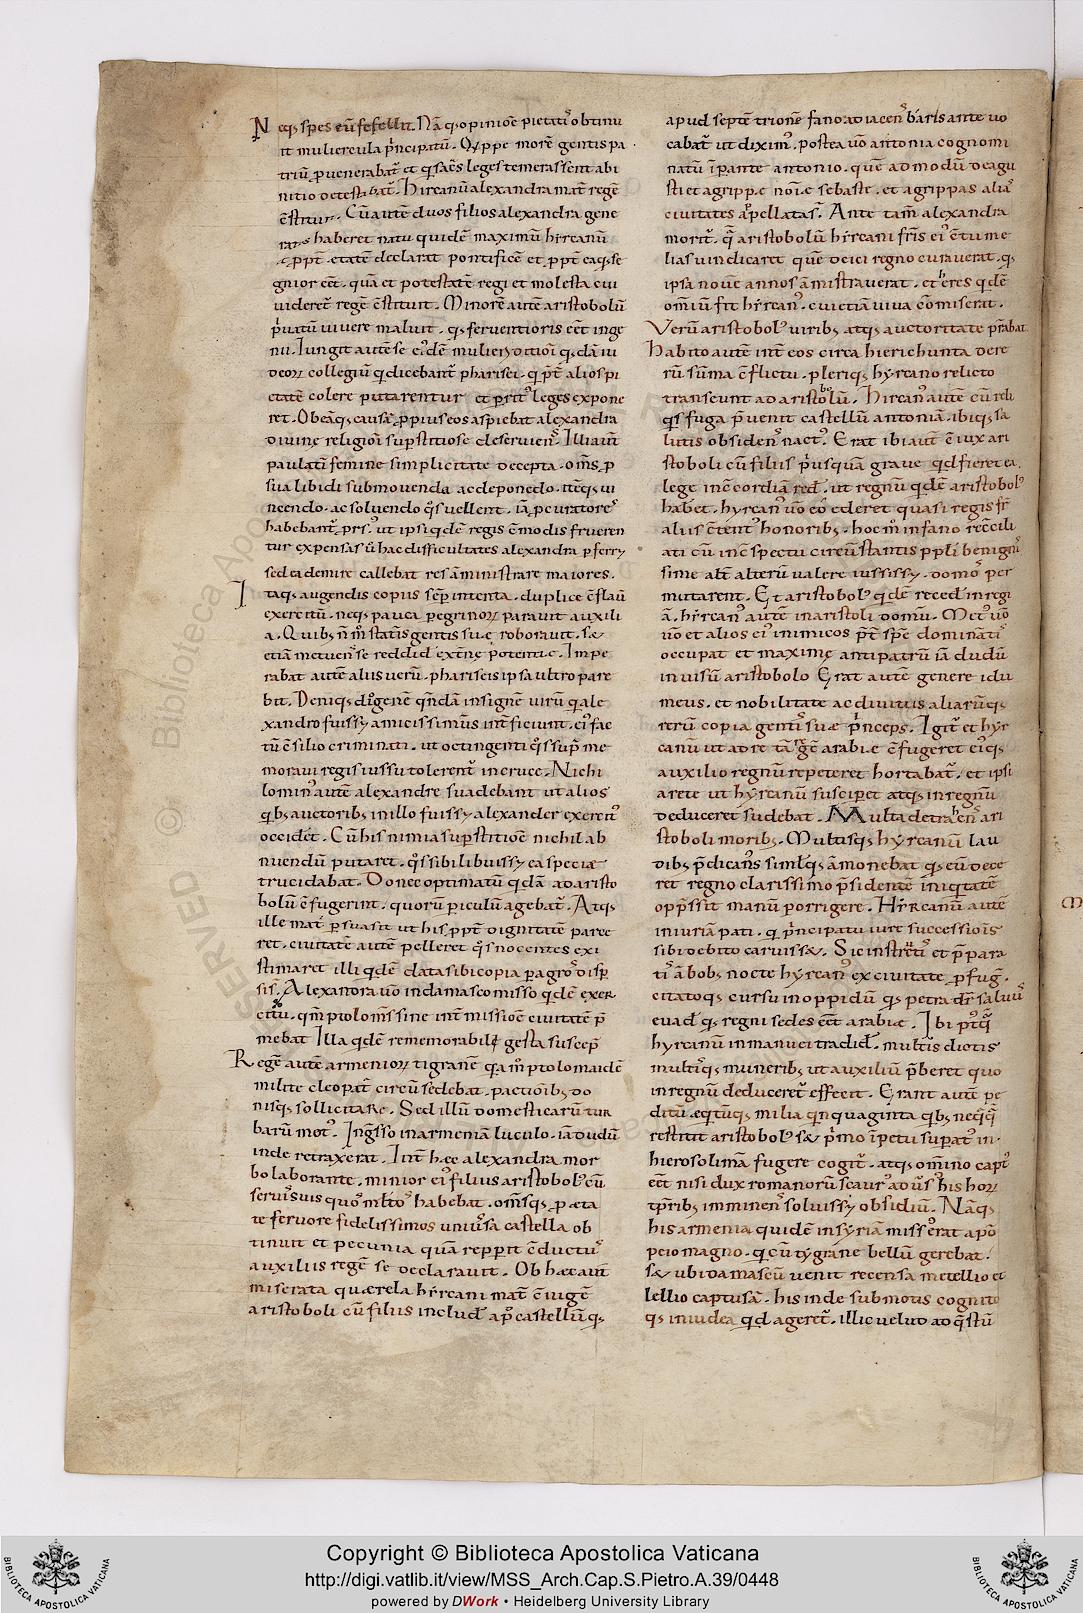 Neq; spes eū fefellit. Nā q; opinioē pietatis obtinu
it muliercula prīncipatū. Quippe morē gentis pa
triū p uenerabat et qi sac̄s leges temerassent abi
nitio detestabat. Hircanū alexandra mat regē
c̄stituit. Cū autē duos filios alexandra gene
ratos haberet natu quidē maximū hircanū
et ppt̄ etatē declarat pontificē et ppt̄ ea q; se
gnior eēt. quā et potestatē regi et molesta cui
uideret regē c̄stituit. Minorē autē aristobolū
p̄uatū uiuere maluit. q; feruentioris eēt inge
nii. Iungit autē se
deoꝝ collegiū q dicebant pharisei. q p̄t alios pi
etatē colere putarentur et perit leges expone
ret. Ob eāq; causā p pius eos aspiebat alexandra
diuine religioi supstitiose deseruiens. Illi aut
paulatī femine simplicitate decepta. om̄s p
sua libidi submouenda ac deponedo. itēq; ui
nciendo. ac soluendo qs uellent. iā pcuratores
habebant
tur expensas ū hac difficultates alexandra p ferre
sed eadem ire callebat res āministrare maiores.
Itaq; augendis copiis semp intenta. duplice c̄flau
exercitū. neq; pauca peregrinoꝝ parauit auxili
a. Quib; n̄ m̄ statūs gentis suę roborauit. s&
etiā metuens se reddid externę potentię. Impe
rabat autē aliis uerū. phariseis ipsa ultro pare
bat. Deniq; diogenē qndā insignē uirū q ale
xandro fuisse amicissimus interficiunt. ei fac
tū c̄silio criminati. ut octingenti qs sup me
moraui regis iussu tolerent in cruce. Nichi
lomin autē alexandre suadebant ut alios
qb; auctorib; in illo fuisse alexander exercit
occidet. Cū his nimia supstitioē nichil ab
nuendū putaret. qs sibi libuisse ea specie
trucidabat. Donec optimatū qdā ad aristo
bolū c̄fugerint. quorū periculū agebat. Atq;
ille mat psuasit ut his ppt̄ dignitatē parce
ret. ciuitatē autē pelleret qs nocentes exi
stimaret illi qdē data sibi copia p agros disp
sis. Alexandra uō in damasco misso qdē exer
citu. qm̄ ptolom̄s sine int missioē ciuitatē p
mebat Illa qdē rememorabile gesta suscep
Regē autē armenioꝝ tigranē q am̄ ptolomaidē
milite cleopat circū sedebat. pactioīb; do
nisq; sollicitare. Sed illū domesticarū tur
barū motꝰ. Ing̅sso in armeniā luculo. iā dudū
inde retraxerat. Int hec alexandra mor
bo laborante. minior ei filius aristobolꝰ cū
seruis suis quos mltos habebat. om̄sq; p æta
te feruore fidelissimos uniusa castella ob
tinuit et pecunia quā repperit c̄ductus
auxiliis regē se declarauit. Ob hæc aut
miserata quærela hircani mat c̄iugē
aristoboli cū filiis includ ap castellū q;
apud septē trionē fano adiacens baris ante uo
cabat ut diximꝰ. postea uō antonia cognomi
natū īperante antonio. quē admodū deagu
sti et agrippe noīe sebaste. et agrippas alias
ciuitates appellatas. Ante tam̄ alexandra
morit. quā aristobolū hircani fris ei c̄tume
lias uindicaret quē deici regno curauerat. q;
ipsa nouē annos āmistrauerat. et heres qdē
omiū fit hircanꝰ. cui etiā uiua c̄omiserat.
Verū aristobolꝰ uirib; atq; auctoritate p̄stabat
Habito autē int eos circa hierichunta dere
rū sūma c̄flictu. pleriq; hyrcano relicto
transeunt ad aristobolū. Hircanꝰ autē cū reli
qs fuga p̄uenit castellū antoniā. ibiq; sa
lutis obsidens nactꝰ. Erat ibi aut c̄iux ari
stoboli cū filiis p̄usquā graue qd fieret ea
lege in c̄cordiā red. ut regnū qdē aristobolꝰ
habet. hyrcanꝰ uō eo cederet quasi regis fr
aliis c̄tentꝰ honorib;. hoc m̄ in fano rec̄cili
ati cū in c̄spectu circūstantis ppli benignis
sime alt alterū ualere iussisse. domos per
mutarent. Et aristobolꝰ qdē reced in regi
ā. hircanꝰ autē in aristoli domū. Metꝰ uō
uō et alios ei inimicos p̄t spē dominatis
occupat et maxime antipatrū iā dudū
inuisū aristobolo Erat autē genere idu
meus. et nobilitate ac diuitiis aliarūq;
rerū copia gentis suæ p̄nceps. Igit et hyr
canū ut ad re tā regē arabię c̄fugeret eiq;
auxilio regnū repeteret hortabat. et ipsi
arete ut hyrcanū susciperet atq; in regnū
deduceret sudebat. Multa detrahens ari
stoboli morib;. Multisq; hyrcanū lau
dib; p̄dicans similq; āmonebat q; eū dece
ret regno clarissimo p̄sidentē iniqtatē
opp̄ssit manū porrigere. Hircanū autē
iniuriā pati. q p̄ncipatu iure successiois
sibi debito caruiss&. Sic instructi et p̄para
ti ābob; nocte hyrcanꝰ ex ciuitate pfug.
citatoq; cursu in oppidū q; petra dr̄ saluus
euad q; regni sedes eēt arabiæ. Ibi
hyrcanū in manu ei tradid. multis dictis
multisq; munerib; ut auxiliū p̄beret quo
in regnū deduceret effecit. Erant autē pe
ditū æqitūq; milia qnquaginta qb; neqq
restitit aristobolꝰ s& p̄mo īpetu supatꝰ in
hierosolimā fugere cogit. atq; om̄ino captꝰ
eēt nisi dux romanorū scaurꝰ ad uīs his hoꝝ
tprib; imminens soluisse obsidiū. Nāq;
his armenia quidē in syriā misserat apō
peio magno. q cū tygrane bellū gerebat.
s& ubi damascū uenit recensa metellio et
lellio captusā. his inde submotis cognito
q; in iudea qd ageret. illic uelud ad qstū
Copyright © Biblioteca Apostolica Vaticana
http://digi.vatlib.it/view/MSS_Arch.Cap.S.Pietro.A.39/0448
powered by DWork • Heidelberg University Library